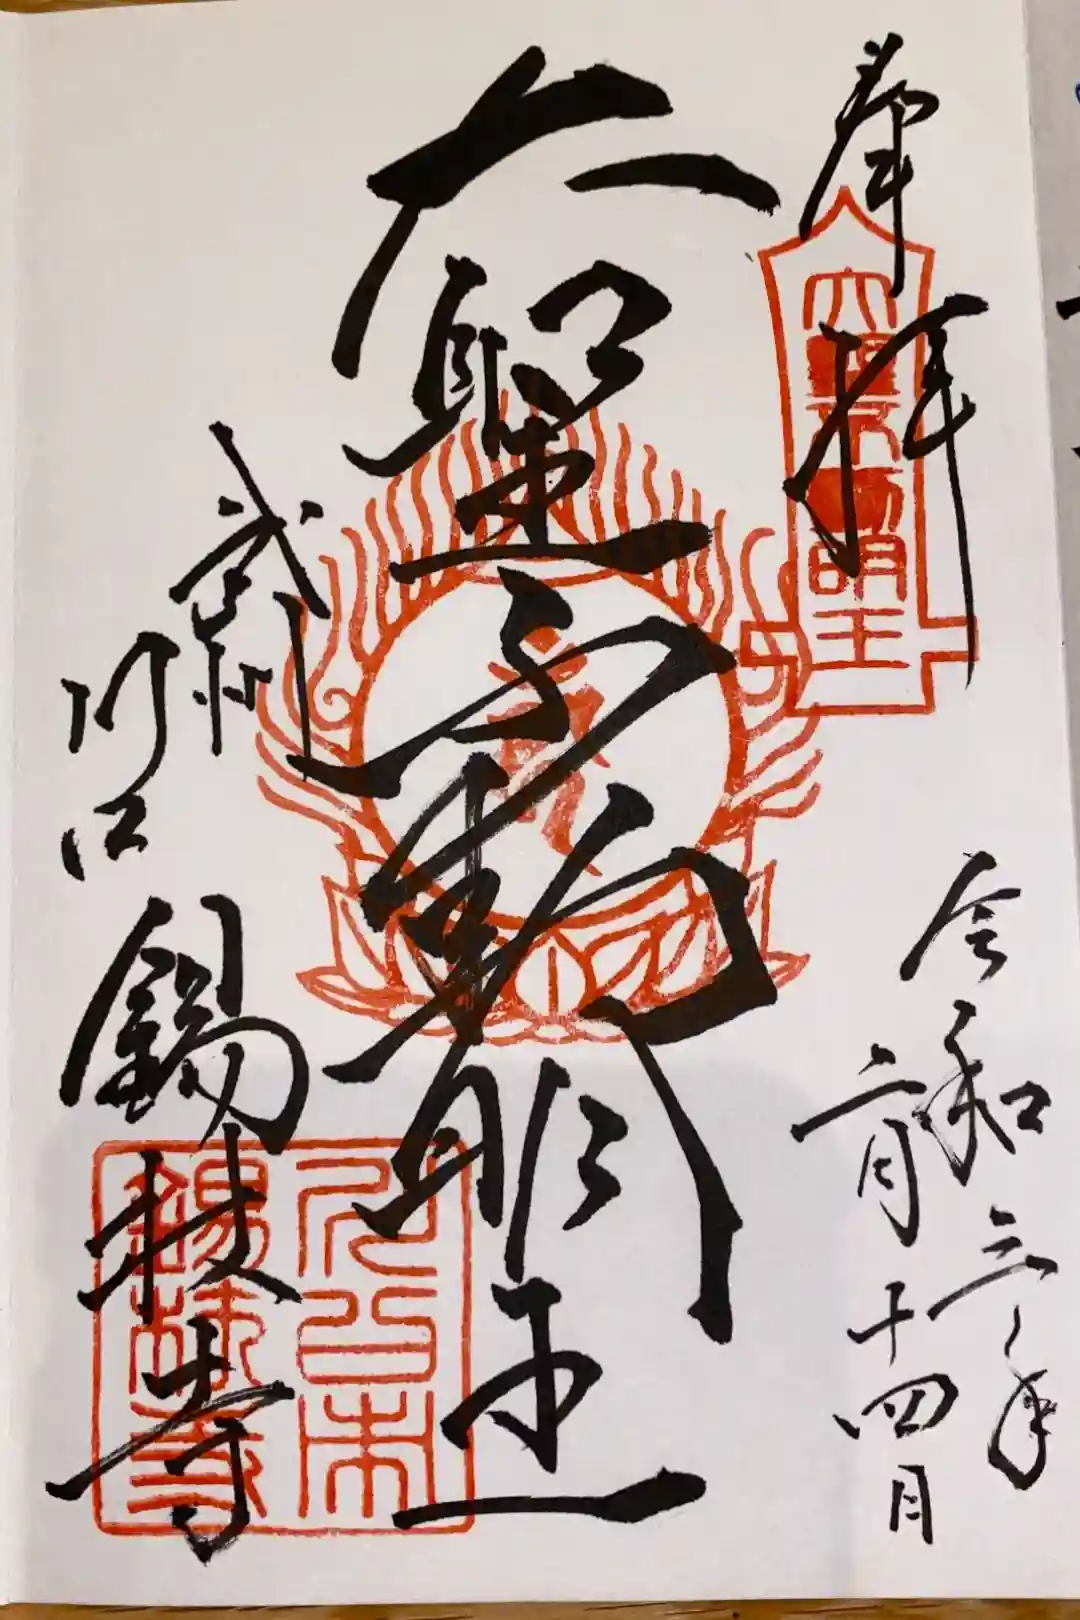 奉拝
大聖不動明王
令和三年
二月十四日
大聖不動明王
武州
川口
錫杖寺
錫杖寺